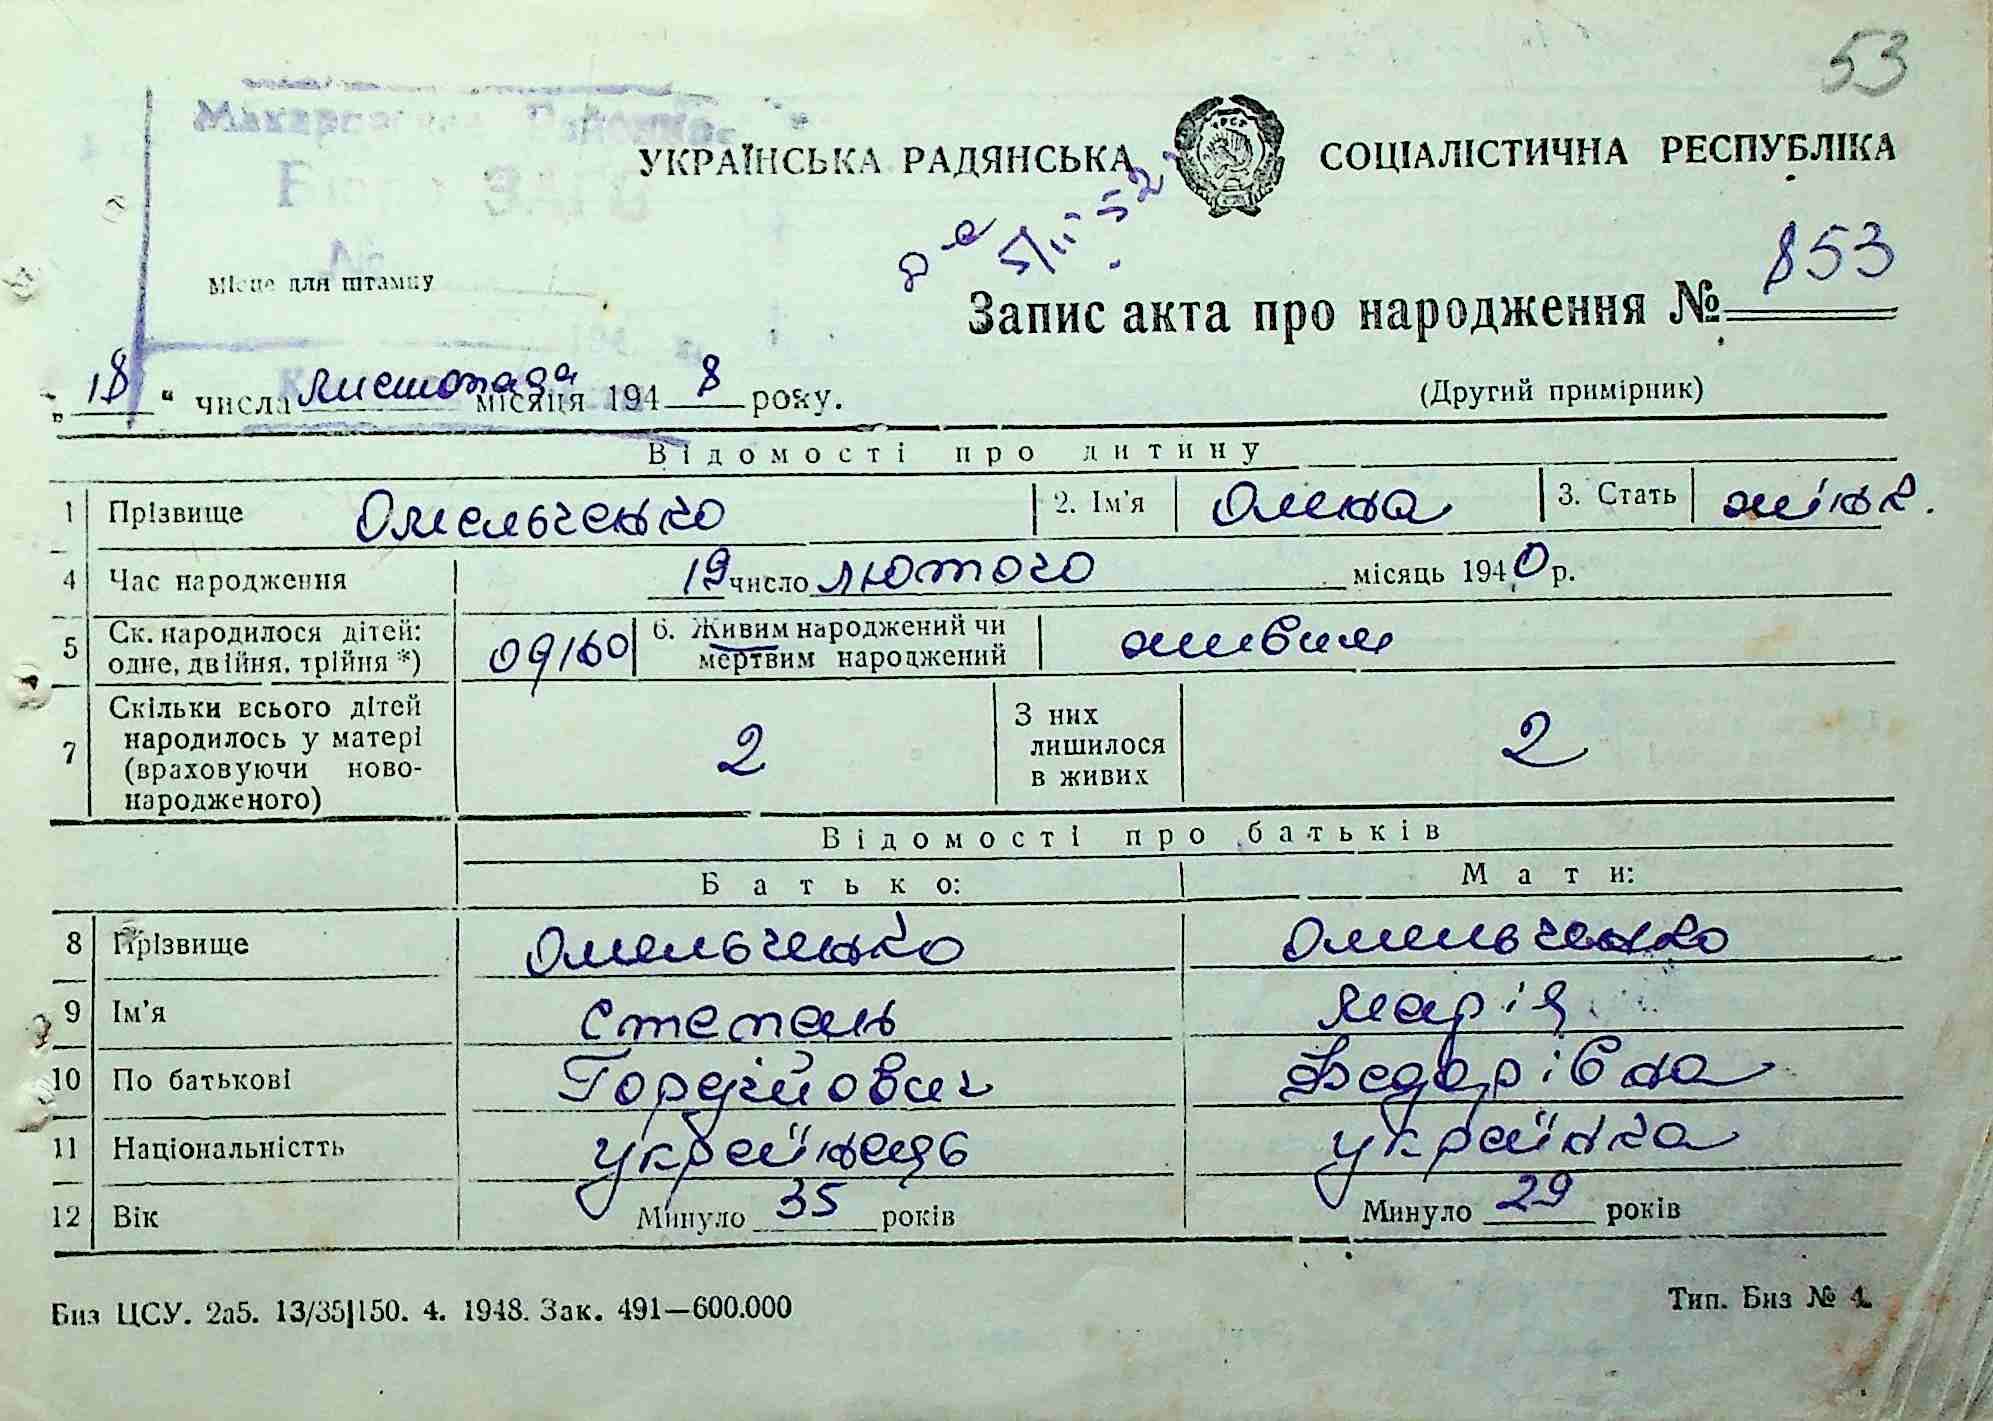 53
Бюро ЗАГС
УКРАЇНСЬКА РАДЯНСЬКА СОЦІАЛІСТИЧНА РЕСПУБЛІКА
5/III 52
Місце для штампу
Запис акта про народження № 853
„18“ числа листопада місяця 1948 року.
(Другий примірник)
Відомості про дитину
1 Прізвище Омельченко 2. Ім'я Олена 3. Стать жінк.
4 Час народження 19 число лютого місяць 1940 р.
5 Ск. народилося дітей: одне, двійня, трійня *) 6. Живим народжений чи мертвим народжений живим
7 Скільки всього дітей народилось у матері (враховуючи ново-народженого) 2 З них лишилося в живих 2
Відомості про батьків
Батько: Мати:
8 Прізвище Омельченко Омельченко
9 Ім'я Степань Марія
10 По батькові Гордійович Федорівна
11 Національністть українець українка
12 Вік Минуло 35 років Минуло 29 років
Биз ЦСУ. 2а5. 13/35|150. 4. 1948. Зак. 491—600.000 Тип. Биз № 4.